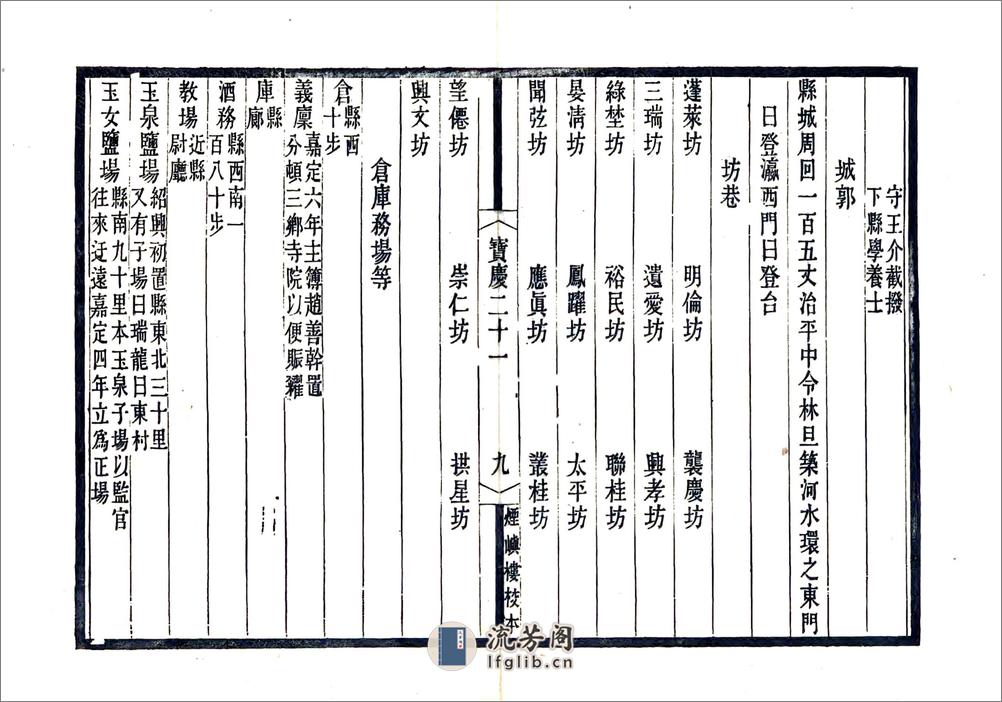 守王介截撥
下縣學養士
城郭
縣城周回一百五丈治平中令林旦築河水環之東門
曰登瀛西門曰登台
坊巷
蓬萊坊 明倫坊 襲慶坊
三瑞坊 遺愛坊 興孝坊
綠埜坊 裕民坊 聯桂坊
晏清坊 鳳躍坊 太平坊
聞弦坊 應眞坊 叢桂坊
寶慶二十一 九 煙嶼樓校本
望僊坊 崇仁坊 拱星坊
興文坊
倉庫務場等
倉縣西
十步
義廩嘉定六年主簿趙善幹置
分頓三鄉寺院以便賑糶
庫縣
廊
酒務縣西南一
百八十步
教場近縣
尉廳
玉泉鹽場紹興初置縣東北三十里
又有子場曰瑞龍曰東村
玉女鹽場縣南九十里本玉泉子場以監官
往來迂遠嘉定四年立爲正場
流芳阁
lfglib.cn